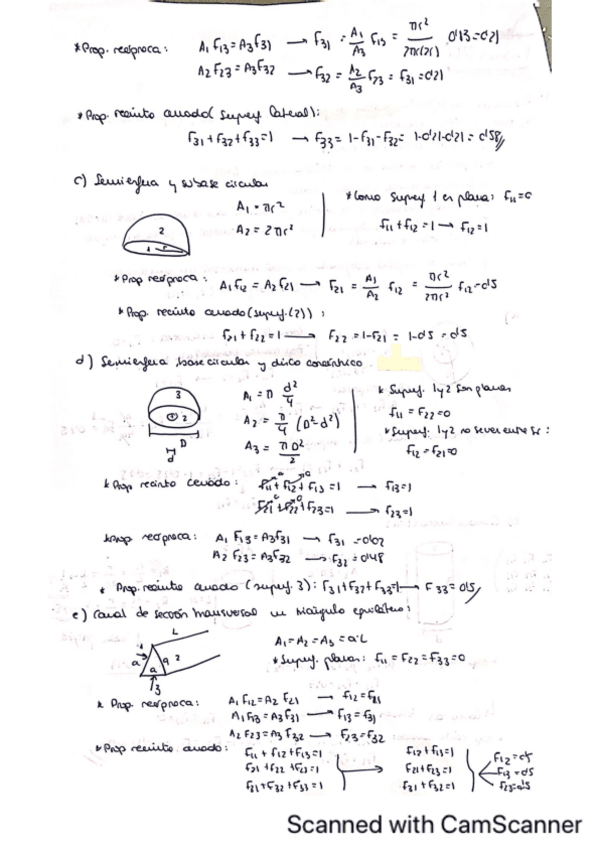 *Prop. recíproca: A₁F₁₃=A₃F₃₁ → F₃₁ = A₁/A₃ F₁₃ = πr²/2πr(2r) · 0'13=0'21
A₂F₂₃=A₃F₃₂ → F₃₂ = A₂/A₃ F₂₃ = F₃₁=0'21
*Prop. recinto cerrado (superf. lateral):
F₃₁+F₃₂+F₃₃=1 → F₃₃=1-F₃₁-F₃₂= 1-0'21-0'21 = 0'58//
c) Semiesfera y su base circular
2
1
r
A₁ = πr²
A₂ = 2πr²
*Como superf 1 es plana: F₁₁=0
F₁₁+F₁₂=1 → F₁₂=1
*Prop recíproca: A₁F₁₂ = A₂F₂₁ → F₂₁ = A₁/A₂ F₁₂ = πr²/2πr² F₁₂=0'5
*Prop. recinto cerrado (superf. (2)):
F₂₁+F₂₂=1 → F₂₂=1-F₂₁ = 1-0'5 = 0'5
d) Semiesfera, base circular y disco concéntrico
3
1 2
D
d
A₁ = π d²/4
A₂ = π/4 (D²-d²)
A₃ = πD²/2
*Superf. 1 y 2 son planas
F₁₁=F₂₂=0
*Superf. 1 y 2 no se ven entre sí:
F₁₂=F₂₁=0
*Prop recinto cerrado: F₁₁+F₁₂+F₁₃=1 → F₁₃=1
F₂₁+F₂₂+F₂₃=1 → F₂₃=1
*Prop recíproca: A₁F₁₃=A₃F₃₁ → F₃₁=0'02
A₂F₂₃=A₃F₃₂ → F₃₂=0'48
* Prop. recinto cerrado (superf. 3): F₃₁+F₃₂+F₃₃=1 → F₃₃=0'5//
e) Canal de sección transversal un triángulo equilátero:
L
1
a
a
2
a
3
A₁=A₂=A₃=a·L
*Superf. planas: F₁₁=F₂₂=F₃₃=0
* Prop. recíproca: A₁F₁₂=A₂F₂₁ → F₁₂=F₂₁
A₁F₁₃=A₃F₃₁ → F₁₃=F₃₁
A₂F₂₃=A₃F₃₂ → F₂₃=F₃₂
*Prop recinto cerrado: F₁₁+F₁₂+F₁₃=1
F₂₁+F₂₂+F₂₃=1
F₃₁+F₃₂+F₃₃=1
F₁₂+F₁₃=1
F₂₁+F₂₃=1
F₃₁+F₃₂=1
F₁₂=0'5
F₁₃=0'5
F₂₃=0'5
Scanned with CamScanner